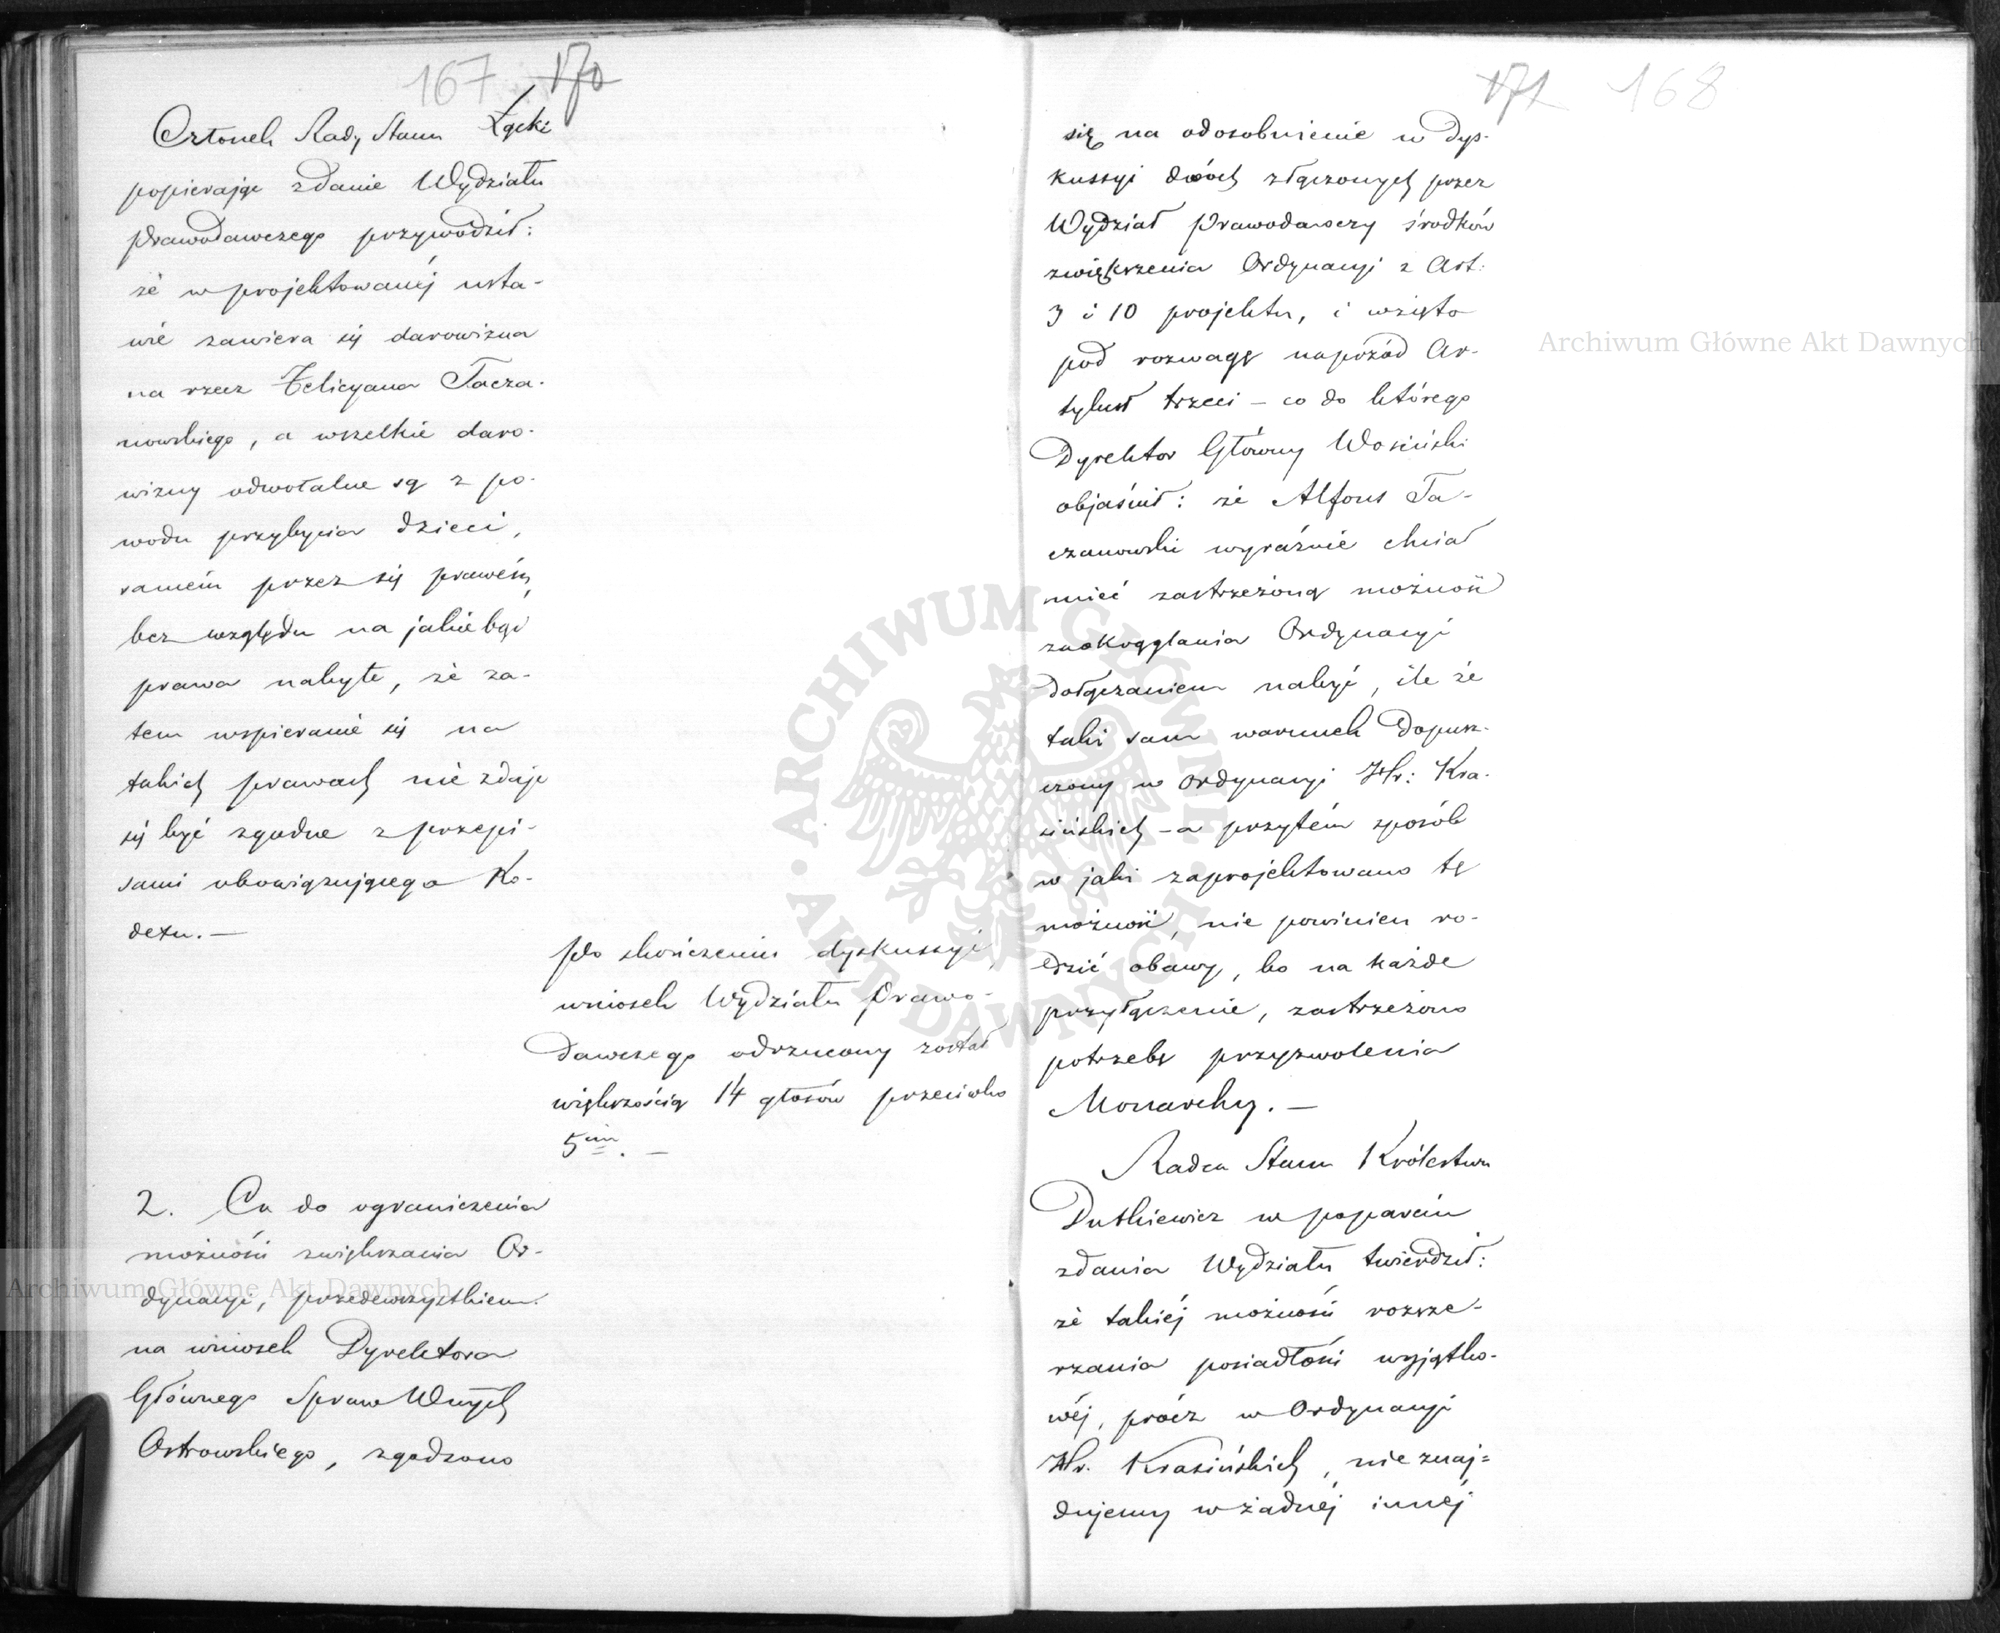 167 170
Członek Rady Stanu Łącki
popierając zdanie Wydziału
Prawodawczego przywodził:
że w projektowanéj usta-
wie zawiera się darowizna
na rzecz Felicyana Tacza-
nowskiego, a wszelkie daro-
wizny odwołalne są z po-
wodu przybycia dzieci,
samém przez się prawem,
bez względu na jakie bądź
prawa nabyte, że za-
tem wspieranie się na
takich prawach nie zdaje
się być zgodne z przepi-
sami obowiązującego Ko-
dexu. —
Po skończeniu dyskussyi,
wniosek Wydziału Prawo-
dawczego odrzucony został
większością 14 głosów przeciwko
5ciu. —
2. Co do ograniczenia
możności zwiększania Or-
dynacyi, przedewszystkiem
na wniosek Dyrektora
Głównego Spraw Wnych
Ostrowskiego, zgodzono
171 168
się na odosobnienie w dys-
kussyi dwóch złączonych przez
Wydział Prawodawczy środków
zwiększenia Ordynacyi z Art:
3 i 10 projektu, i wzięto
pod rozwagę naprzód Ar-
tykuł trzeci – co do którego
Dyrektor Główny Wosiński
objaśnił: że Alfons Ta-
czanowski wyraźnie chciał
mieć zastrzeżoną możność
zaokrąglania Ordynacyi
dołączaniem nabyć, ile że
taki sam warunek dopusz-
czony w Ordynacyi Hr: Kra-
sińskich – a przytém sposób
w jaki zaprojektowano tę
możność, nie powinien ro-
dzić obawy, bo na każde
przyłączenie, zastrzeżono
potrzebę przyzwolenia
Monarchy. —
Radca Stanu Królestwa
Dutkiewicz w poparciu
zdania Wydziału twierdził:
że takiéj możności rozsze-
rzania posiadłości wyjątko-
wéj, prócz w Ordynacyi
Hr. Krasińskich, nie znaj-
dujemy w żadnéj innéj
Archiwum Główne Akt Dawnych
Archiwum Główne Akt Dawnych
ARCHIWUM GŁÓWNE · AKT DAWNYCH ·